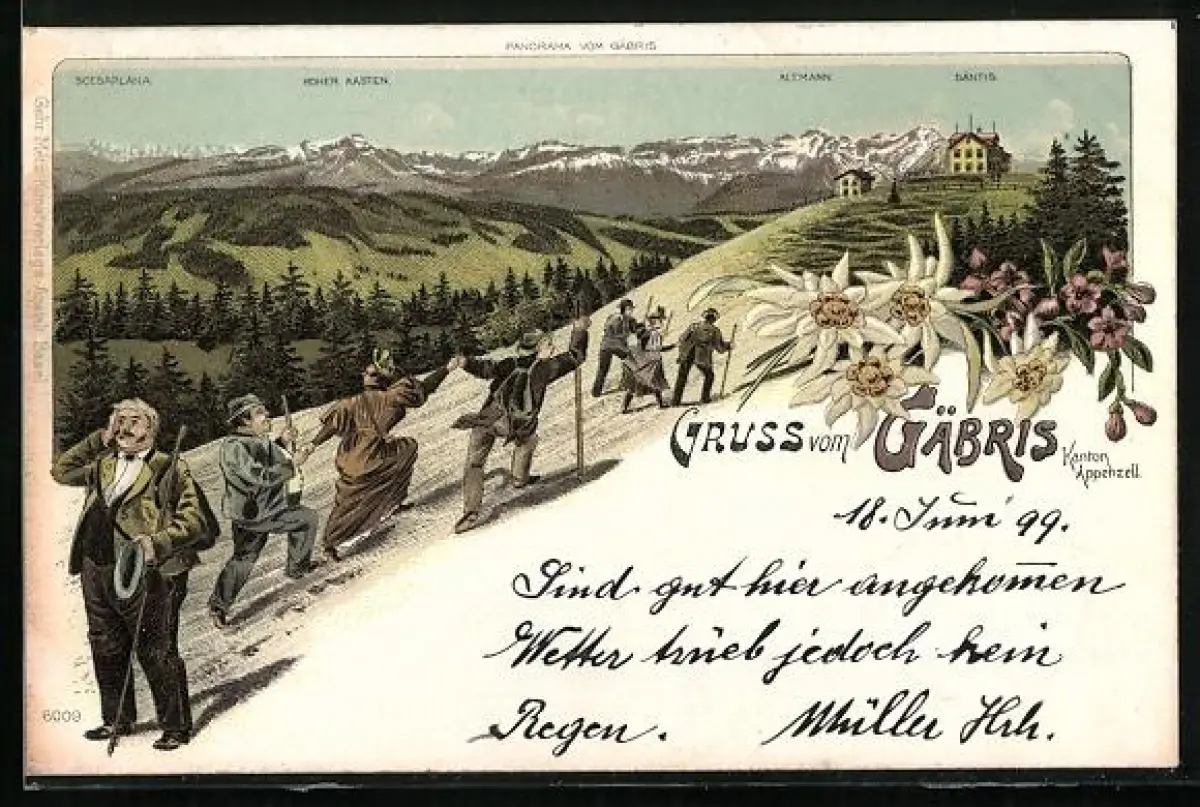 PANORAMA VOM GÄBRIS
SCESAPLANA
HOHER KASTEN
ALTMANN
SÄNTIS
GRUSS VOM GÄBRIS
Kanton
Appenzell
18. Juni 99.
Sind gut hier angekom̄en
Wetter trüeb jedoch kein
Regen. Müller Hrh.
6009